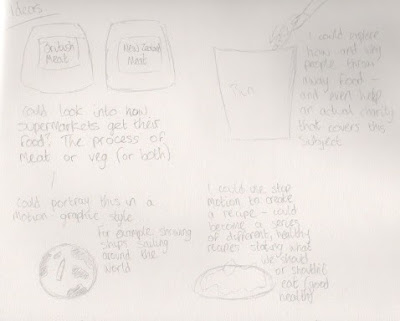 Ideas
British
Meat
New Zealand
Meat
Could look into how
supermarkets get their
food? The process of
meat or veg (or both)
Could portray this in a
motion-graphic style
For example showing
ships sailing
around the
world
Bin
I could explore
how and why
people throw
away food -
and even help
an actual charity
that covers this
subject
I could use stop
motion to create
a recipe - could
become a series
of different, healthy
recipes stating what
we should
or shouldn't
eat (good
health)